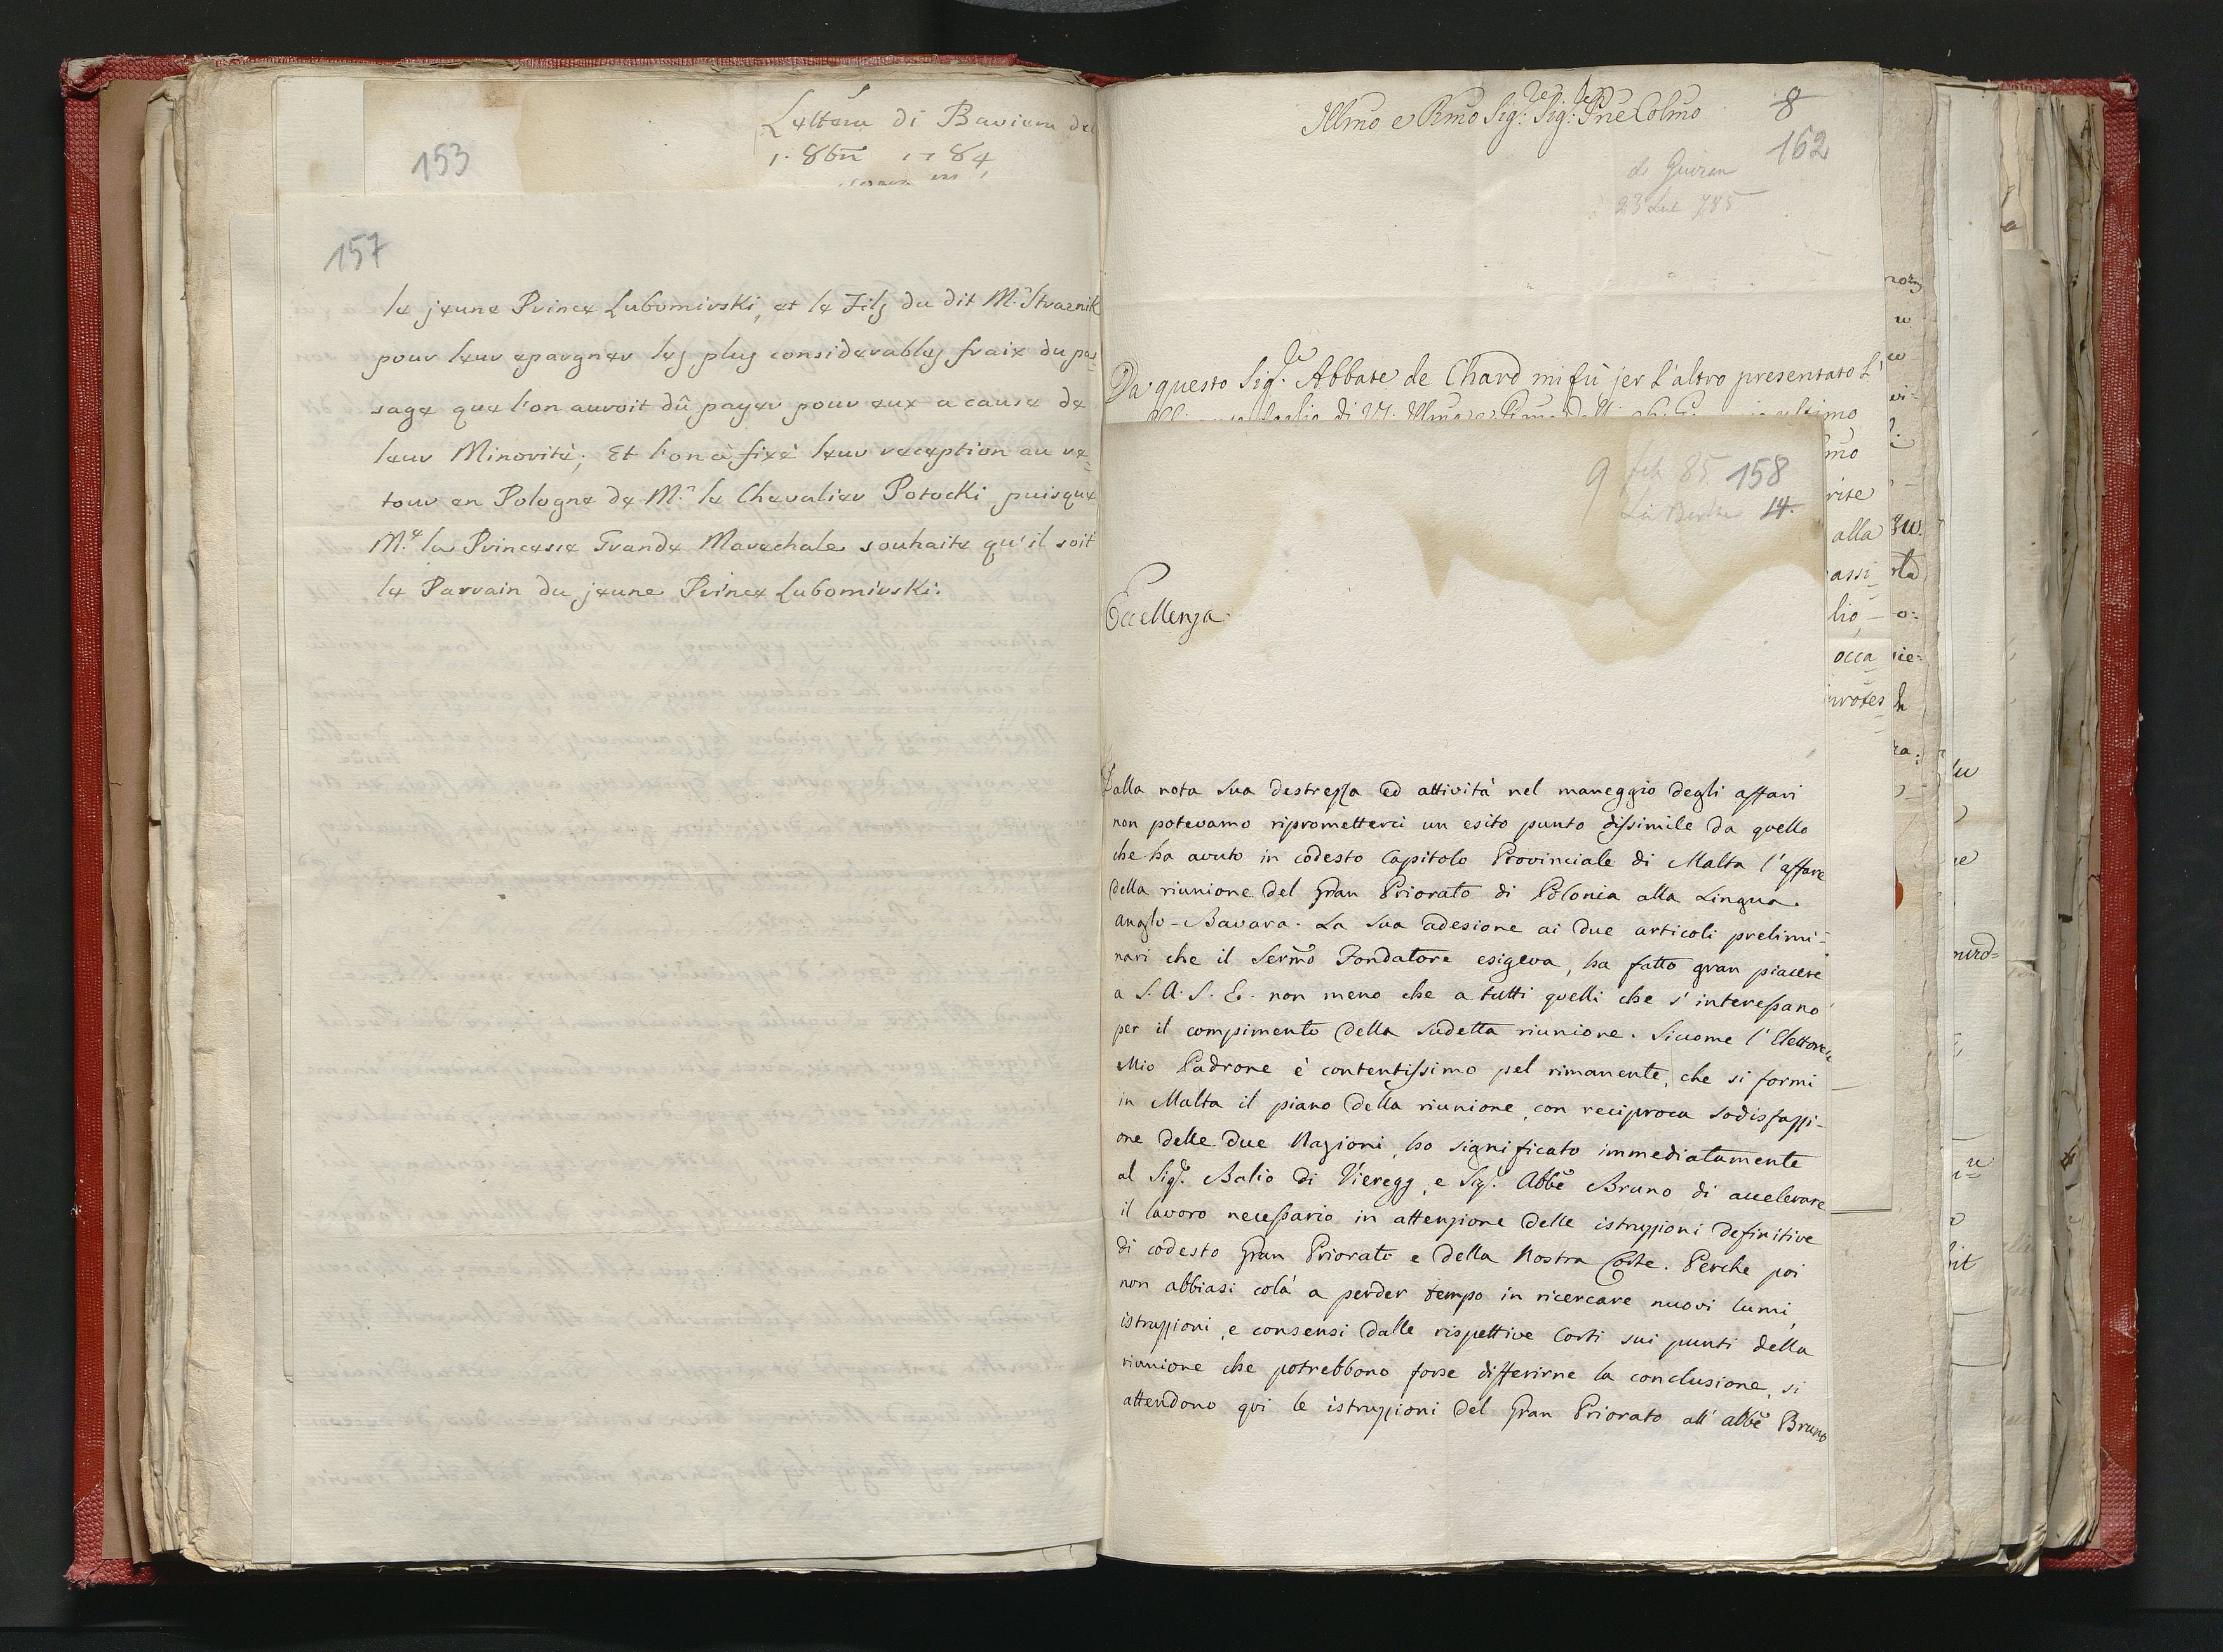 153
Lettera di Baviera del
1. 8bre 1784
157
le jeune Prince Lubomirski, et le Fils du dit M.r Straznik
pour leur epargner les plus considerables fraix du pas=
sage que l'on auroit dû payer pour eux a cause de
leur Minorité; Et l'on à fixé leur reception au re=
tour en Pologne de M.r le Chevalier Potocki, puisque
M.e la Princesse Grande Marechale souhaite qu'il soit
le Parrain du jeune Prince Lubomirski.
Illmo e Rmo Sig.re Sig.re Pne Colmo
8
162
de Guiran
23 785
Da questo Sig.re Abbate de Chard mi fù jer l'altro presentato l'
foglio di V.S. Illma e ultimo
9 feb 85. 158
14.
Eccellenza.
Dalla nota sua destrezza ed attività nel maneggio degli affari
non potevamo riprometterci un esito punto dissimile da quello
che ha avuto in codesto Capitolo Provinciale di Malta l'affare
della riunione del Gran Priorato di Polonia alla Lingua
Anglo-Bavara. La sua adesione ai due articoli prelimi=
nari che il Sermo Fondatore esigeva, ha fatto gran piacere
a S.A.S.E. non meno che a tutti quelli che s'interessano
per il compimento della sudetta riunione. Siccome l'Elettore
Mio Padrone è contentissimo pel rimanente, che si formi
in Malta il piano della riunione, con reciproca sodisfazzi-
one delle due Nazioni, ho significato immediatamente
al Sig.r Balio di Vieregg, e Sig.r Abbe Bruno di accelerare
il lavoro necessario in attenzione delle istruzzioni definitive
di codesto Gran Priorato e della Nostra Corte. Perche poi
non abbiasi colà a perder tempo in ricercare nuovi lumi,
istruzzioni, e consensi dalle rispettive Corti sui punti della
riunione che potrebbono forse differirne la conclusione, si
attendono qui le istruzzioni del Gran Priorato all'abbe Bruno